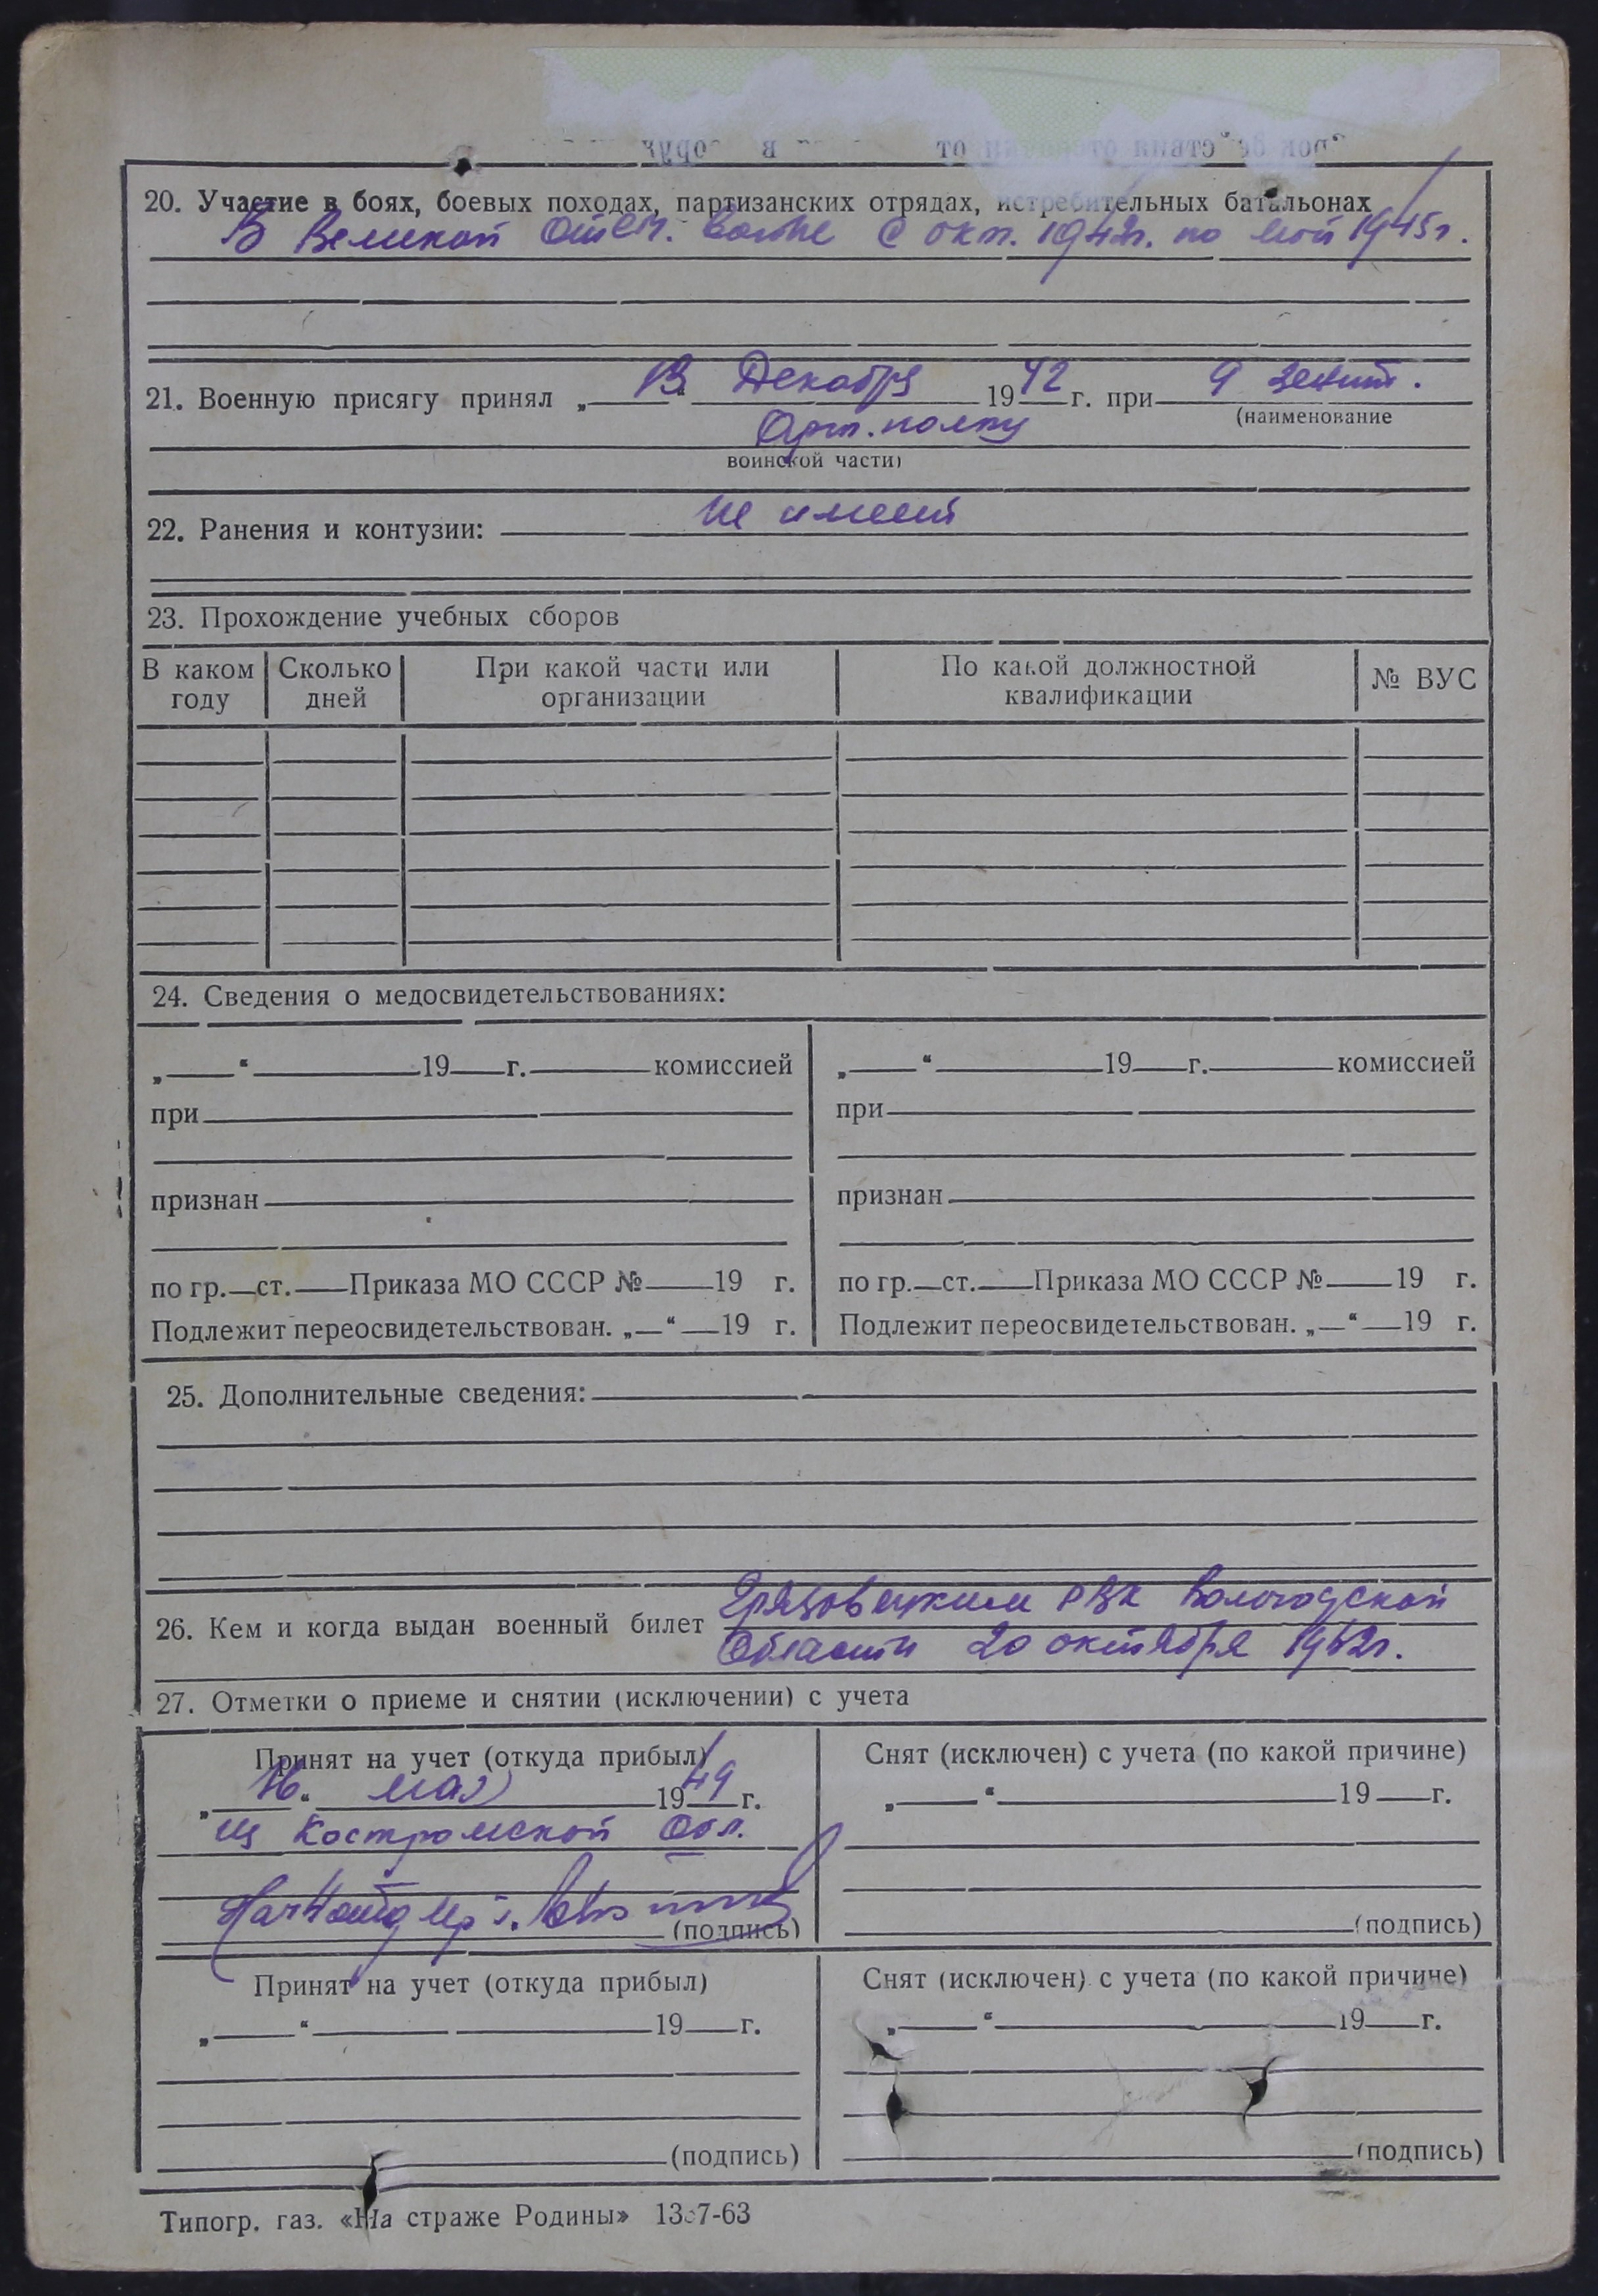 20. Участие в боях, боевых походах, партизанских отрядах, истребительных батальонах
В Великой Отеч. войне с окт. 1942г. по май 1945г.
21. Военную присягу принял „13“ Декабря 1942 г. при 9 зенит.
(наименование
Арт. полку
воинской части)
22. Ранения и контузии: не имеет
23. Прохождение учебных сборов
В каком году | Сколько дней | При какой части или организации | По какой должностной квалификации | № ВУС
24. Сведения о медосвидетельствованиях:
„ “ 19 г. комиссией „ “ 19 г. комиссией
при при
признан признан
по гр. ст. Приказа МО СССР № 19 г. по гр. ст. Приказа МО СССР № 19 г.
Подлежит переосвидетельствован. „ “ 19 г. Подлежит переосвидетельствован. „ “ 19 г.
25. Дополнительные сведения:
26. Кем и когда выдан военный билет Грязовецким РВК Вологодской
Области 20 октября 19 2г.
27. Отметки о приеме и снятии (исключении) с учета
Принят на учет (откуда прибыл) Снят (исключен) с учета (по какой причине)
„16“ мая 1949 г. „ “ 19 г.
из Костромской Обл.
(подпись) (подпись)
Принят на учет (откуда прибыл) Снят (исключен) с учета (по какой причине)
„ “ 19 г. „ “ 19 г.
(подпись) (подпись)
Типогр. газ. «На страже Родины»